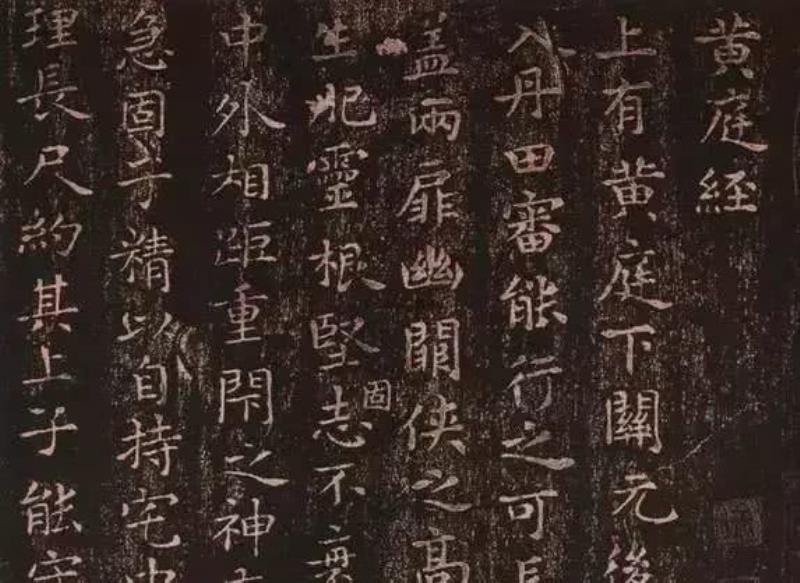 黄庭經
上有黄庭下關元後
入丹田審能行之可長
盖兩扉幽關侠之高
生肥靈根堅固志不衰
中外相距重閇之神
急固子精以自持宅中
理長尺約其上子能守